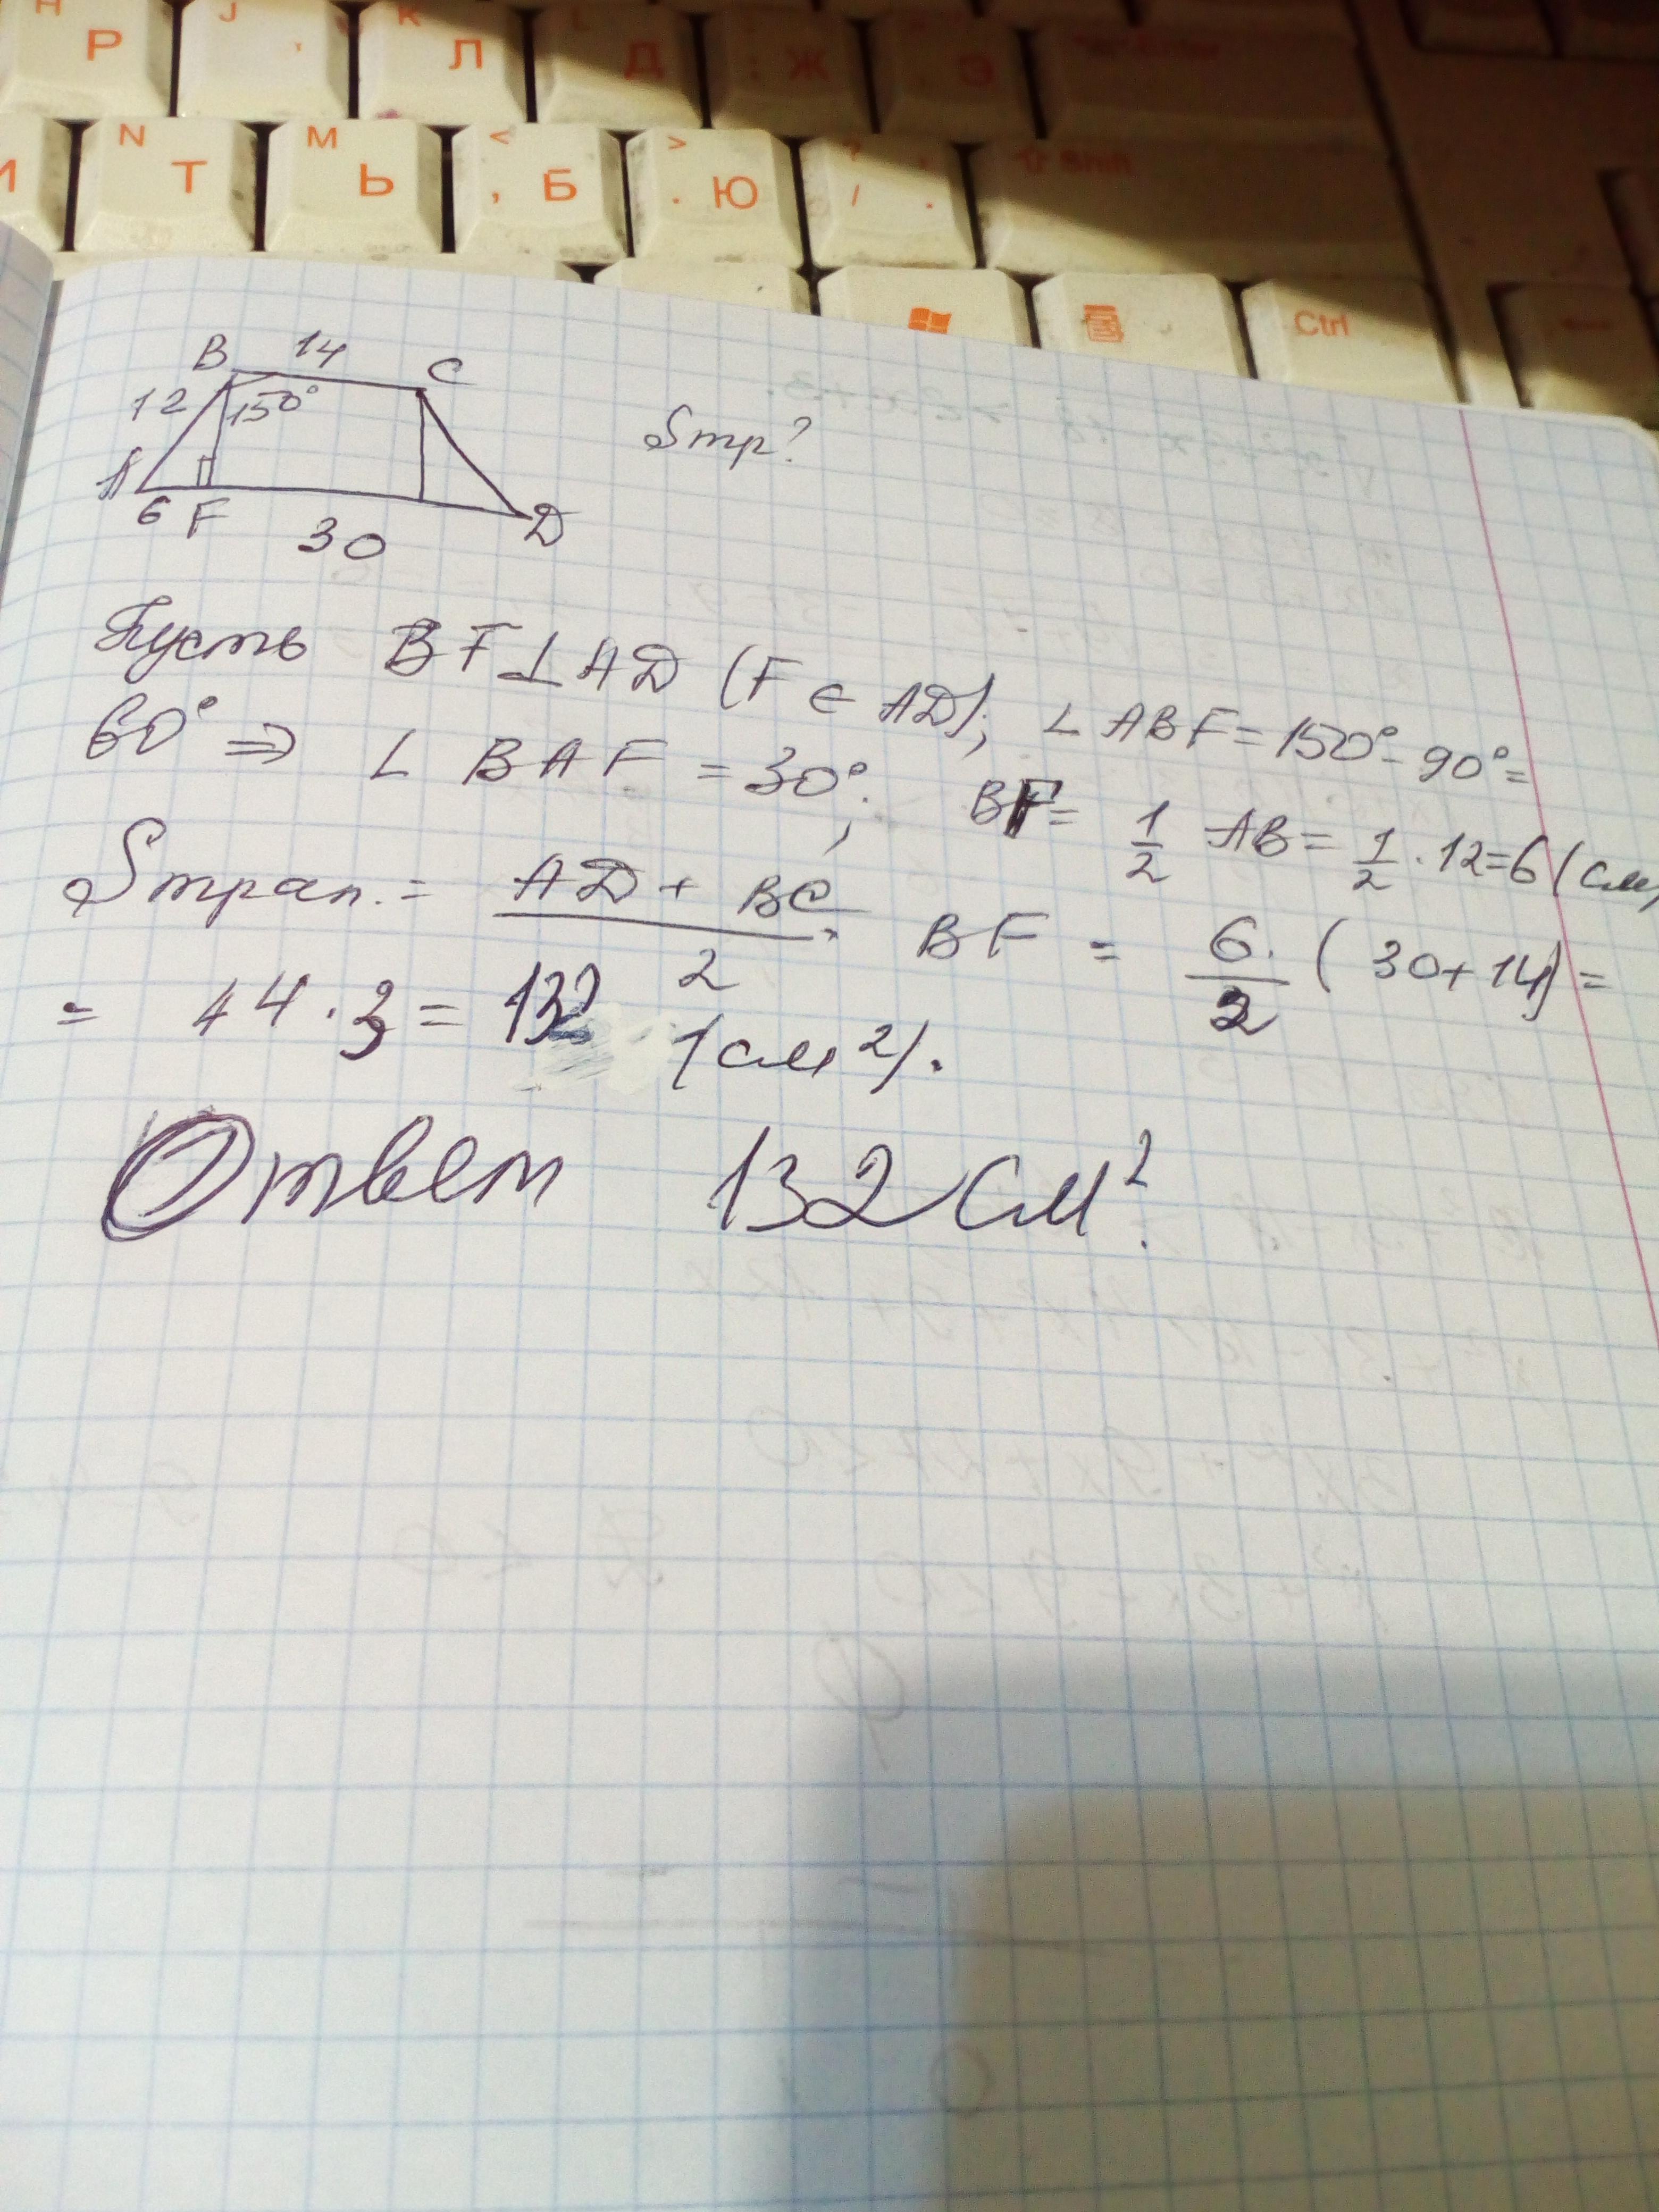 H Р J , К Л L Д : Ж Э Enter
И N Т М Ь < , Б > . Ю ? / , . ⇧ Shift
Ctrl
B 14 C
12 150°
Sтр?
A 6 F 30 D
Пусть BF⊥AD (F ∈ AD); ∠ABF = 150° - 90° =
60° ⇒ ∠ BAF = 30°; BF = 1/2 AB = 1/2 · 12 = 6 (см)
Sтрап. = (AD + BC)/2 · BF = 6/2 · (30 + 14) =
= 44 · 3 = 132 (см²).
Ответ 132 см².